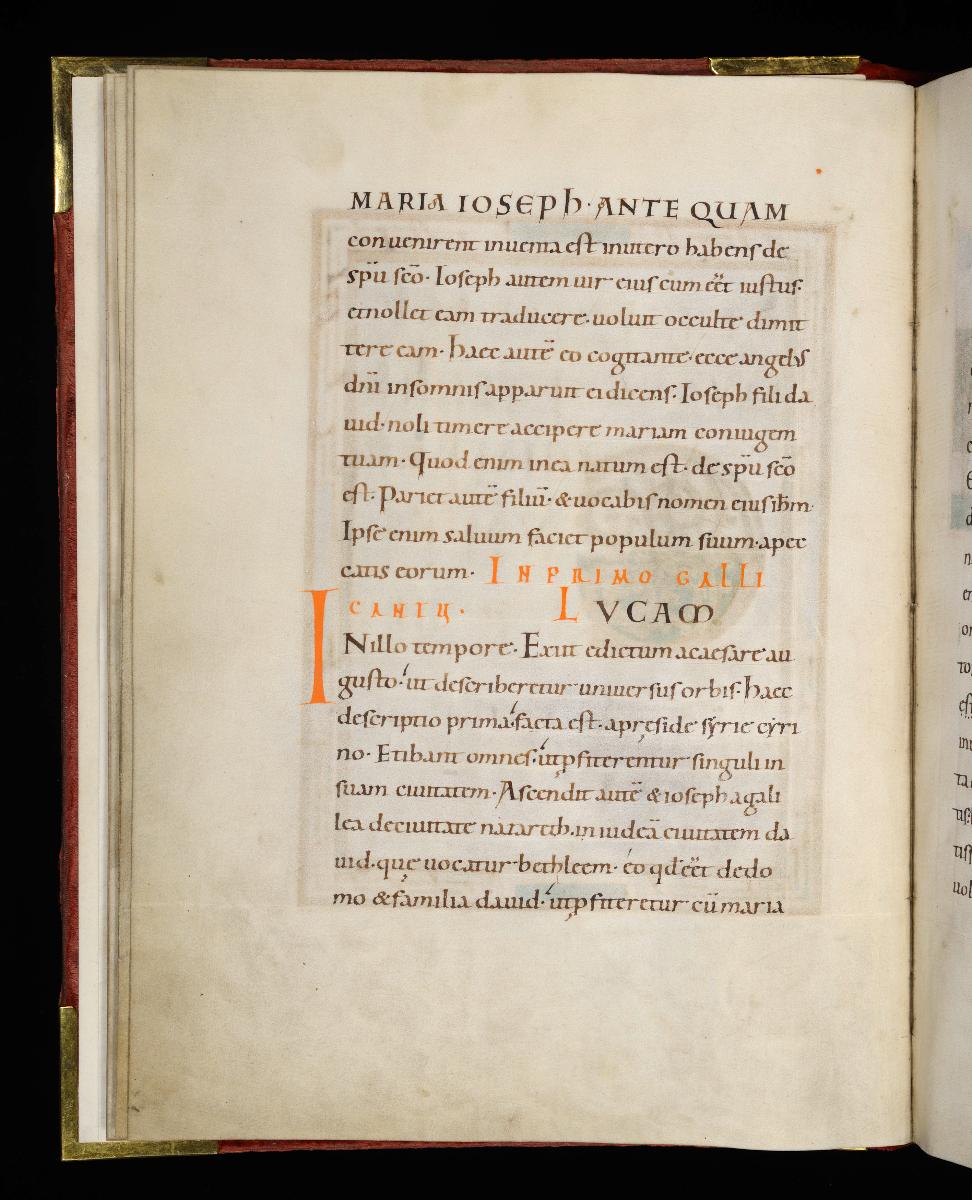 MARIA IOSEPh· ANTE QUAM
convenirent inventa est inutero habens de
spū scō· Ioseph autem vir eius cum eēt iustus·
etnollet eam traducere· voluit occulte dimit
tere eam· haec autē eo cogitante· ecce angelus
dnī insomnis apparuit ei dicens· Ioseph fili da
uid· noli timere accipere mariam coniugem
tuam· Quod enim inea natum est· de spū scō
est· Pariet autē filiū· & vocabis nomen eius ihm·
Ipse enim salvum faciet populum suum· apec
catis eorum· IN PRIMO GALLI
CANTU· LUCAM
INillo tempore· Exiit edictum acaesare au
gusto· ut describeretur universus orbis· haec
descriptio prima· facta est· apreside syrie cyri
no· Et ibant omnes· ut pfiterentur singuli in
suam civitatem· Ascendit autē & ioseph agali
lea decivitate nazareth· in iudeā civitatem da
uid· quę vocatur bethleem· eo qd eēt dedo
mo & familia david· ut pfiteretur cū maria